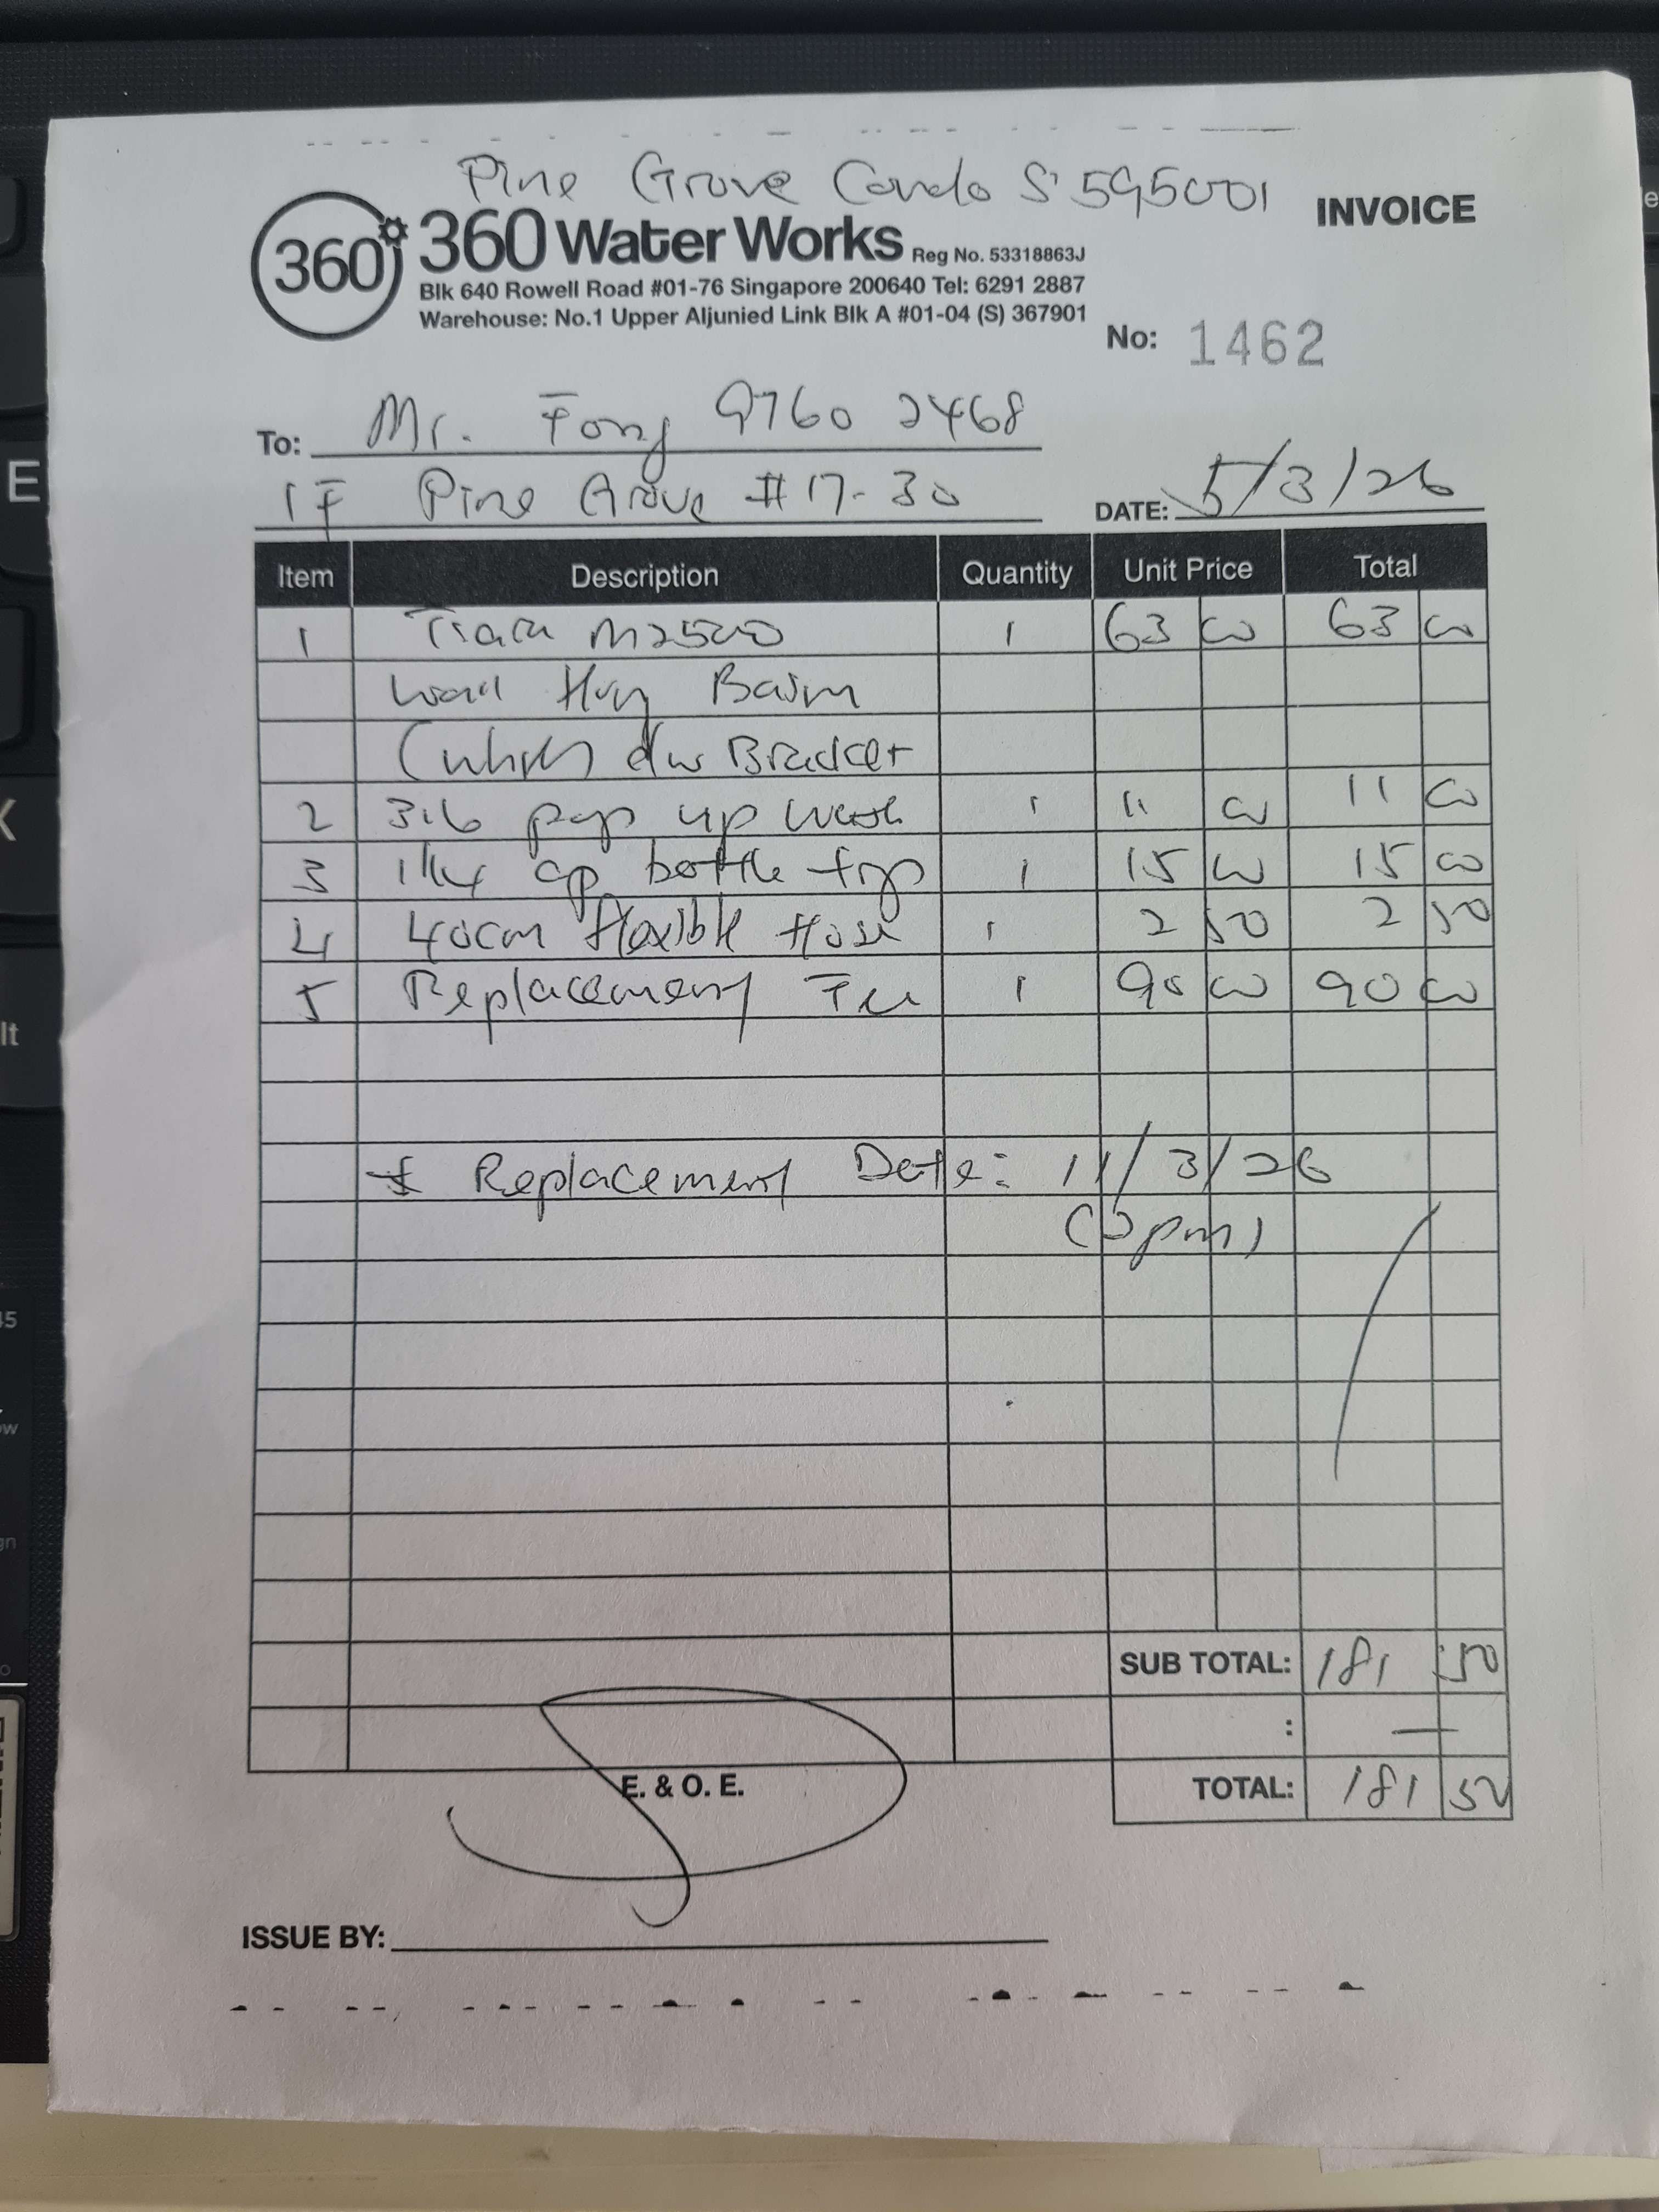 Pine Grove Condo S'595001
INVOICE
360° 360 Water Works Reg No. 53318863J
Blk 640 Rowell Road #01-76 Singapore 200640 Tel: 6291 2887
Warehouse: No.1 Upper Aljunied Link Blk A #01-04 (S) 367901
No: 1462
To: Mr. Fong 9760 2468
1F Pine Grove #17-30
DATE: 5/3/26
Item Description Quantity Unit Price Total
1 Tiara M2500 1 63 00 63 00
Wall Hung Basin
(White) c/w Bracket
2 316 pop up waste 1 11 00 11 00
3 1 1/4 cp bottle trap 1 15 00 15 00
4 40cm Flexible Hose 1 2 50 2 50
5 Replacement Fee 1 90 00 90 00
* Replacement Date: 11/3/26
pm)
SUB TOTAL: 181 50
: —
TOTAL: 181 50
E. & O. E.
ISSUE BY: